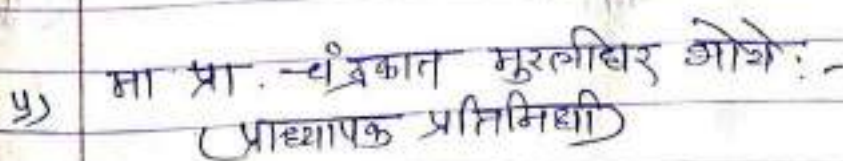 ५) मा प्रा. चंद्रकात मुरलीधर ओशे :-
(प्राध्यापक प्रतिनिधी)